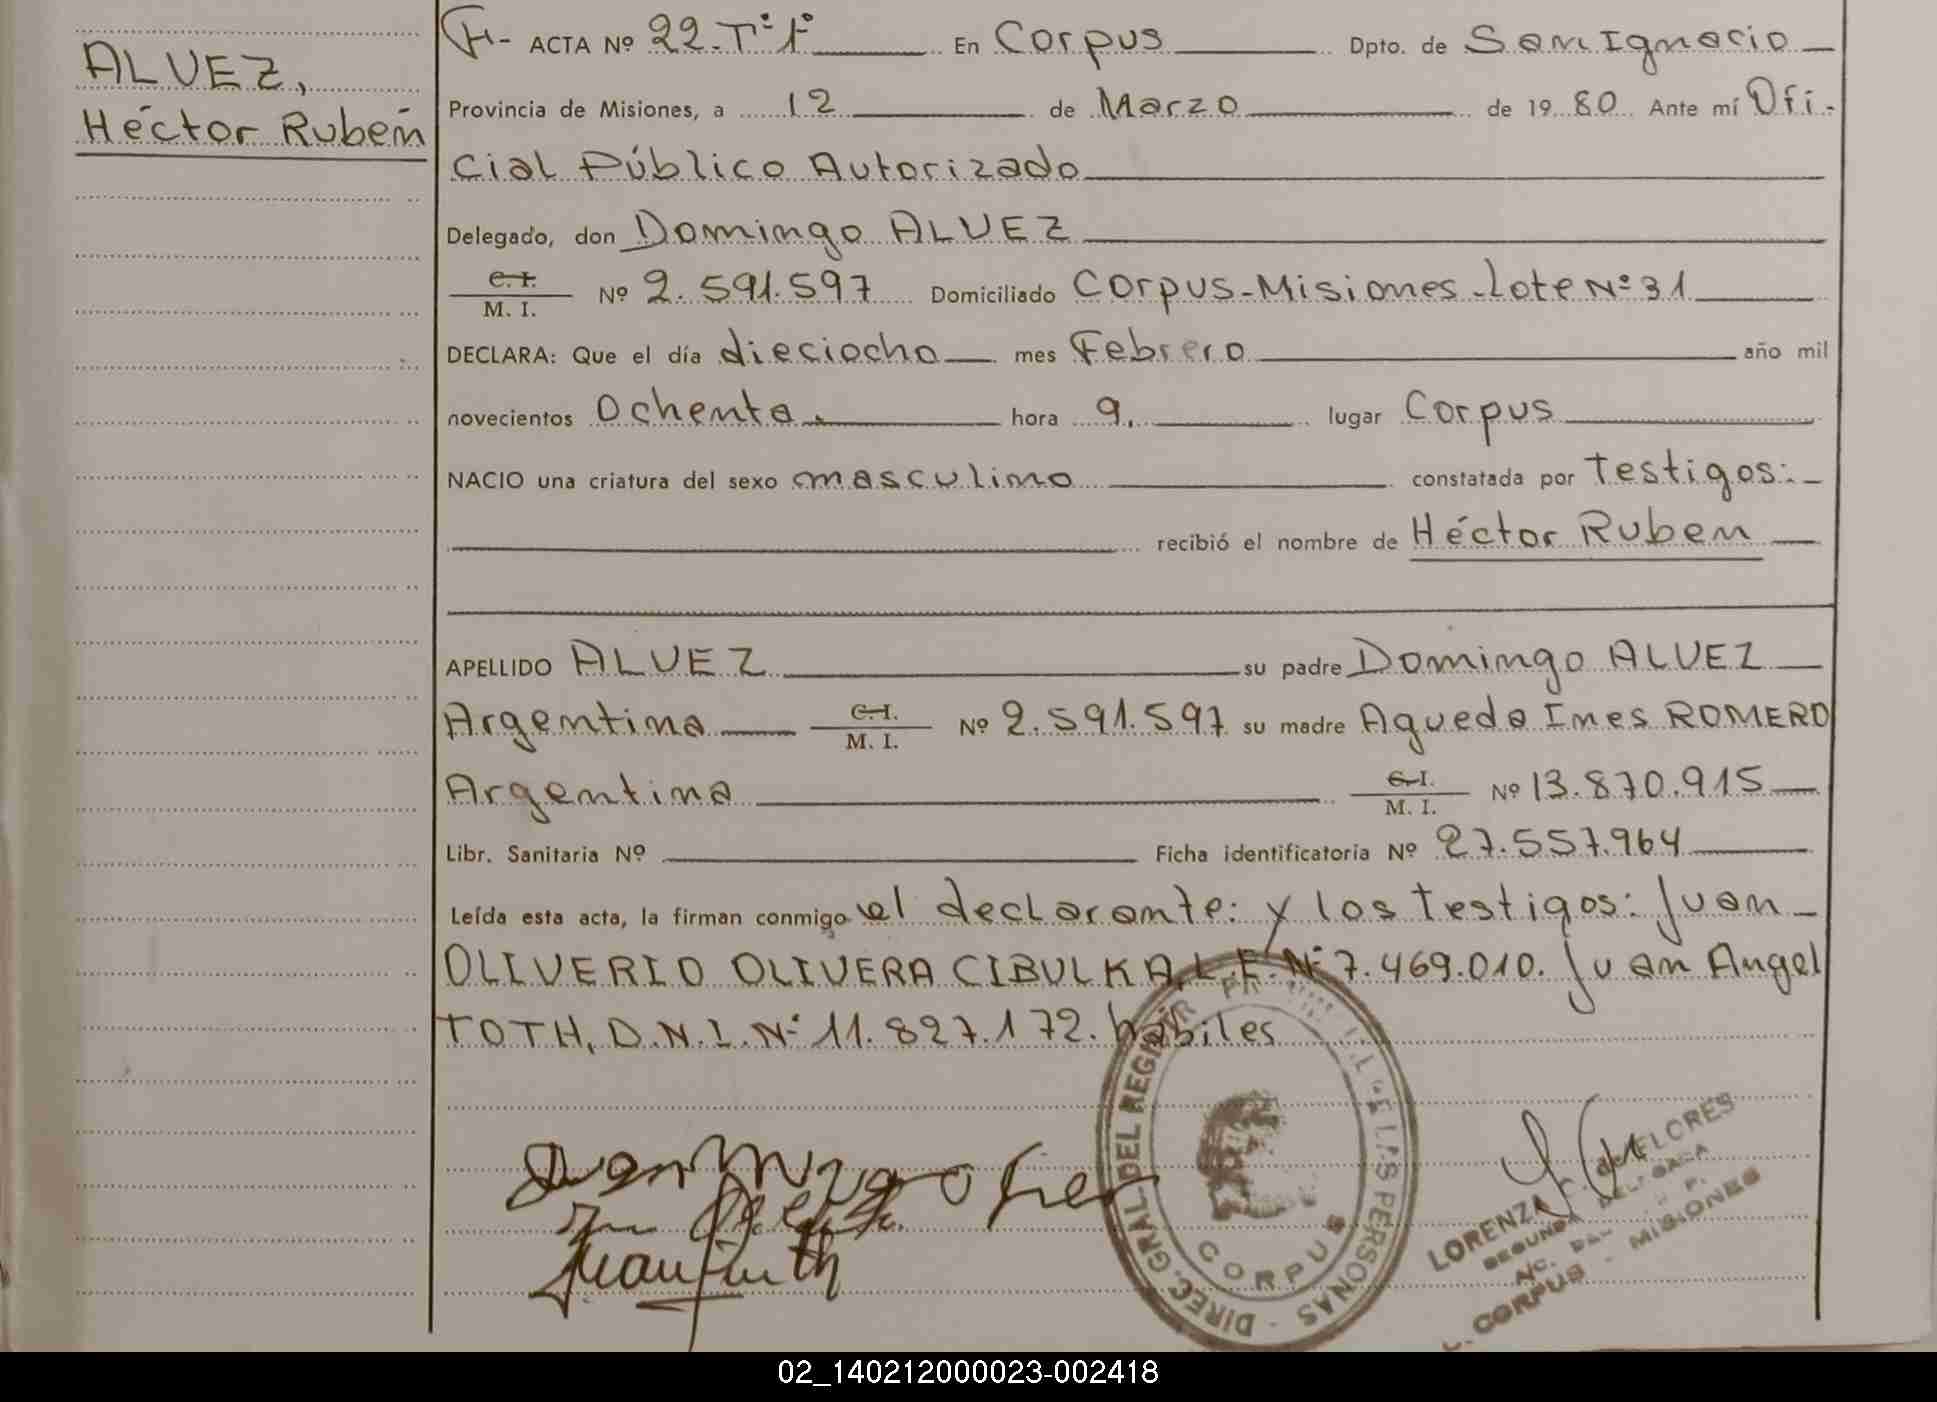 ALVEZ,
Héctor Rubén
H- ACTA Nº 22-Tº 1º En Corpus Dpto. de San Ignacio
Provincia de Misiones, a 12 de Marzo de 1980 Ante mí Ofi-
cial Público Autorizado
Delegado, don Domingo ALVEZ
C. I. / M. I. Nº 2.591.597 Domiciliado Corpus-Misiones-Lote Nº 31
DECLARA: Que el día dieciocho mes Febrero año mil
novecientos Ochenta hora 9. lugar Corpus
NACIO una criatura del sexo masculino constatada por Testigos:
recibió el nombre de Héctor Ruben
APELLIDO ALVEZ su padre Domingo ALVEZ
Argentina C. I. / M. I. Nº 2.591.597 su madre Agueda Ines ROMERO
Argentina C. I. / M. I. Nº 13.870.915
Libr. Sanitaria Nº Ficha identificatoria Nº 27.557.964
Leída esta acta, la firman conmigo el declarante: y los testigos: Juan
OLIVERIO OLIVERA CIBULKA, L.E. Nº 7.469.010. Juan Angel
TOTH, D.N.I. Nº 11.827.172. hábiles
DIREC. GRAL DEL REG. DE LAS PERSONAS
CORPUS
LORENZA C. de FLORES
SEGUNDA DELEGADA
A/C.
CORPUS - MISIONES
02_140212000023-002418